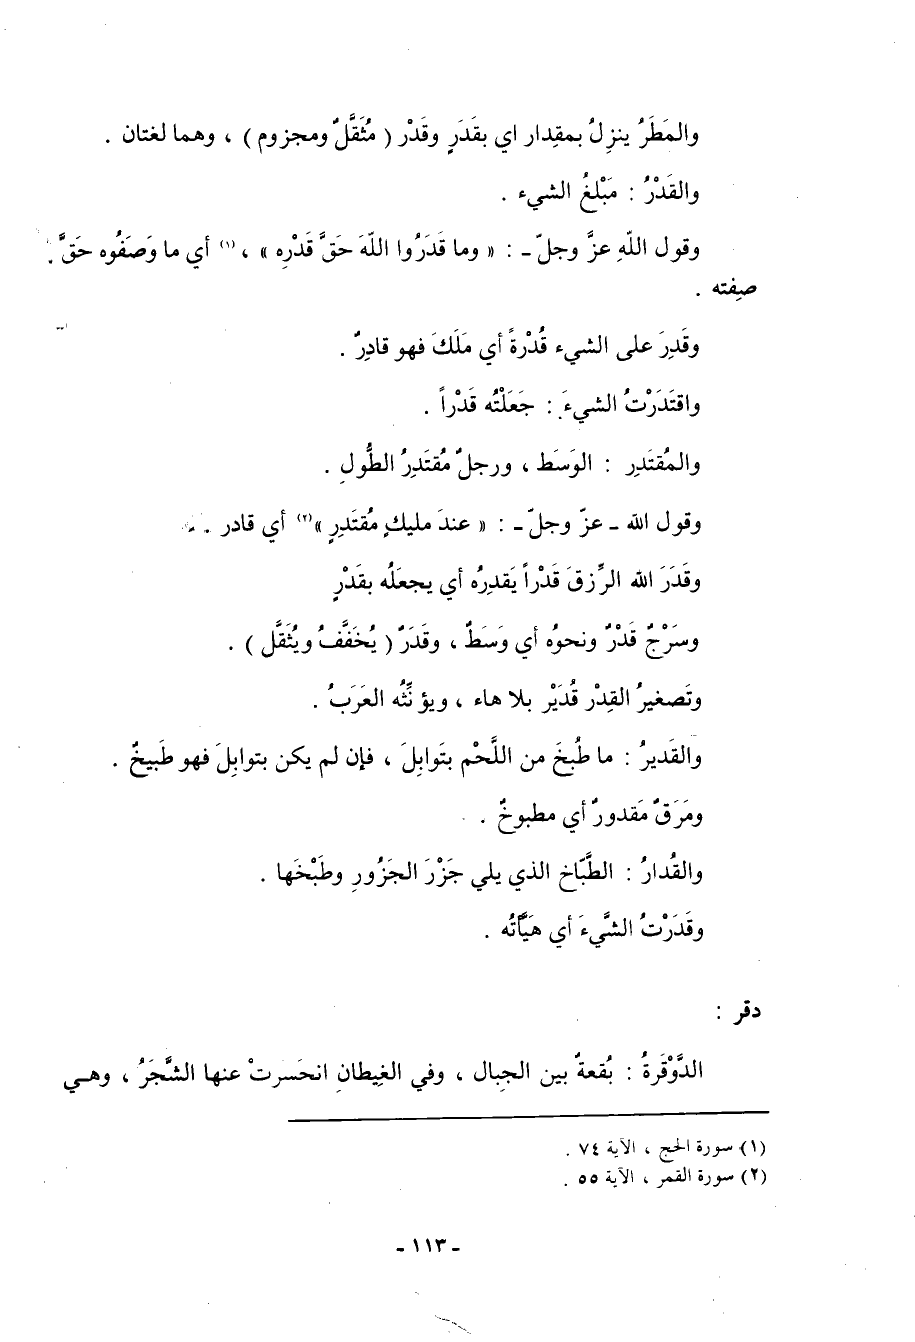 والمَطَرُ ينزِلُ بمقِدار اي بقَدَرٍ وقَدْر ( مُثَقَّلٌ ومجزوم ) ، وهما لغتان .
والقَدْرُ : مَبْلغُ الشيء .
وقول اللّهِ عزَّ وجلّ ـ : « وما قَدَرُوا اللّهَ حَقَّ قَدْرِه » ،(١) أي ما وَصَفُوه حَقَّ
صِفته .
وقَدِرَ على الشيء قُدْرةً أي مَلَكَ فهو قادِرٌ .
واقتَدَرْتُ الشيءَ : جَعَلْتُه قَدْراً .
والمُقتَدِر : الوَسَط ، ورجلٌ مُقتَدِرُ الطُّولِ .
وقول الله ـ عزّ وجلّ ـ : « عندَ مليكٍ مُقتَدِرٍ »(٢) أي قادر .
وقَدَرَ الله الرِّزقَ قَدْراً يَقدِرُه أي يجعَلُه بقَدْرٍ
وسَرْجٌ قَدْرٌ ونحوُه أي وَسَطٌ ، وقَدَرٌ ( يُخَفَّفُ ويُثَقَّل ) .
وتَصغيرُ القِدْر قُدَيْر بلا هاء ، ويؤنِّثُه العَرَبُ .
والقَديرُ : ما طُبِخَ من اللَّحْم بتَوابِلَ ، فإن لم يكن بتوابِلَ فهو طَبيخٌ .
ومَرَقٌ مَقدورٌ أي مطبوخٌ .
والقُدارُ : الطَّبّاخ الذي يلي جَزْرَ الجَزُورِ وطَبْخَها .
وقَدَرْتُ الشَّيءَ أي هَيَّأتُه .
دقر :
الدَّوْقَرةُ : بُقعةٌ بين الجِبال ، وفي الغِيطانِ انحَسَرتْ عنها الشَّجَرُ ، وهي
(١) سورة الحج ، الآية ٧٤ .
(٢) سورة القمر ، الآية ٥٥ .
ـ ١١٣ ـ